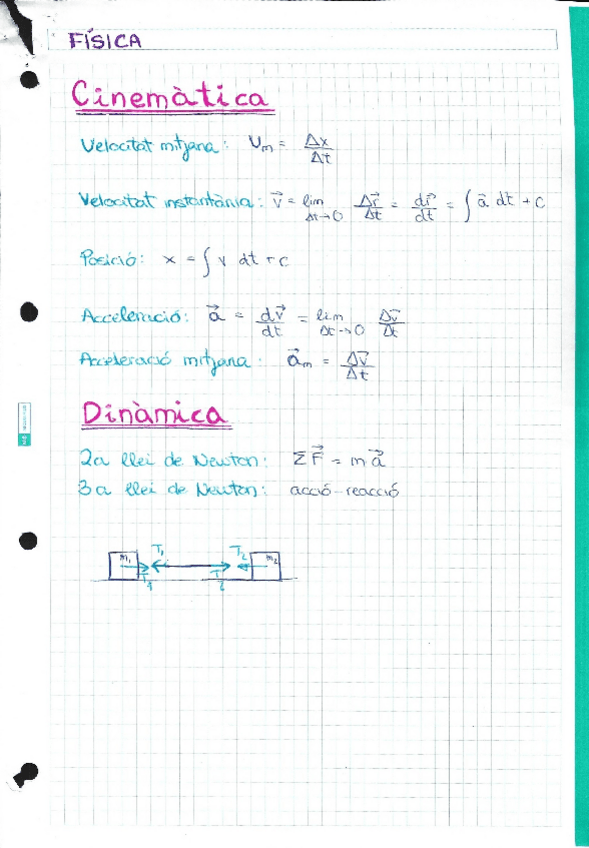 FÍSICA
Cinemàtica
Velocitat mitjana: Vm = Δx/Δt
Velocitat instantània: v⃗ = lim Δt→0 Δr⃗/Δt = dr⃗/dt = ∫ a⃗ dt + C
Posició: x = ∫ v dt + C
Acceleració: a⃗ = dv⃗/dt = lim Δt→0 Δv⃗/Δt
Acceleració mitjana: a⃗m = Δv⃗/Δt
Dinàmica
2a llei de Newton: ΣF⃗ = m a⃗
3a llei de Newton: acció-reacció
m1 T1 T2 m2
T1 T2